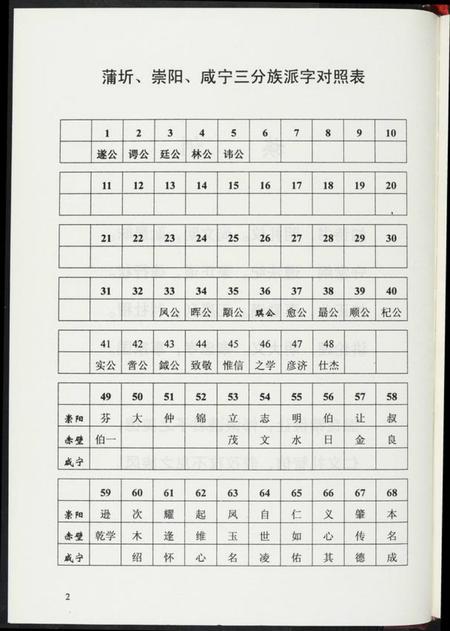 蒲圻、崇阳、咸宁三分族派字对照表
1 2 3 4 5 6 7 8 9 10
遂公 谔公 廷公 林公 讳公
11 12 13 14 15 16 17 18 19 20
21 22 23 24 25 26 27 28 29 30
31 32 33 34 35 36 37 38 39 40
凤公 晖公 颙公 琪公 愈公 勗公 顺公 杞公
41 42 43 44 45 46 47 48
实公 啻公 鉞公 致敬 惟信 之学 彦济 仕杰
49 50 51 52 53 54 55 56 57 58
崇阳 芬 大 仲 锦 立 志 明 伯 让 叔
赤壁 伯一 茂 文 水 日 金 良
咸宁
59 60 61 62 63 64 65 66 67 68
崇阳 逊 次 耀 起 凤 自 仁 义 肇 本
赤壁 乾学 木 逢 维 玉 世 如 心 传 名
咸宁 绍 怀 心 名 凌 佑 其 德 成
2